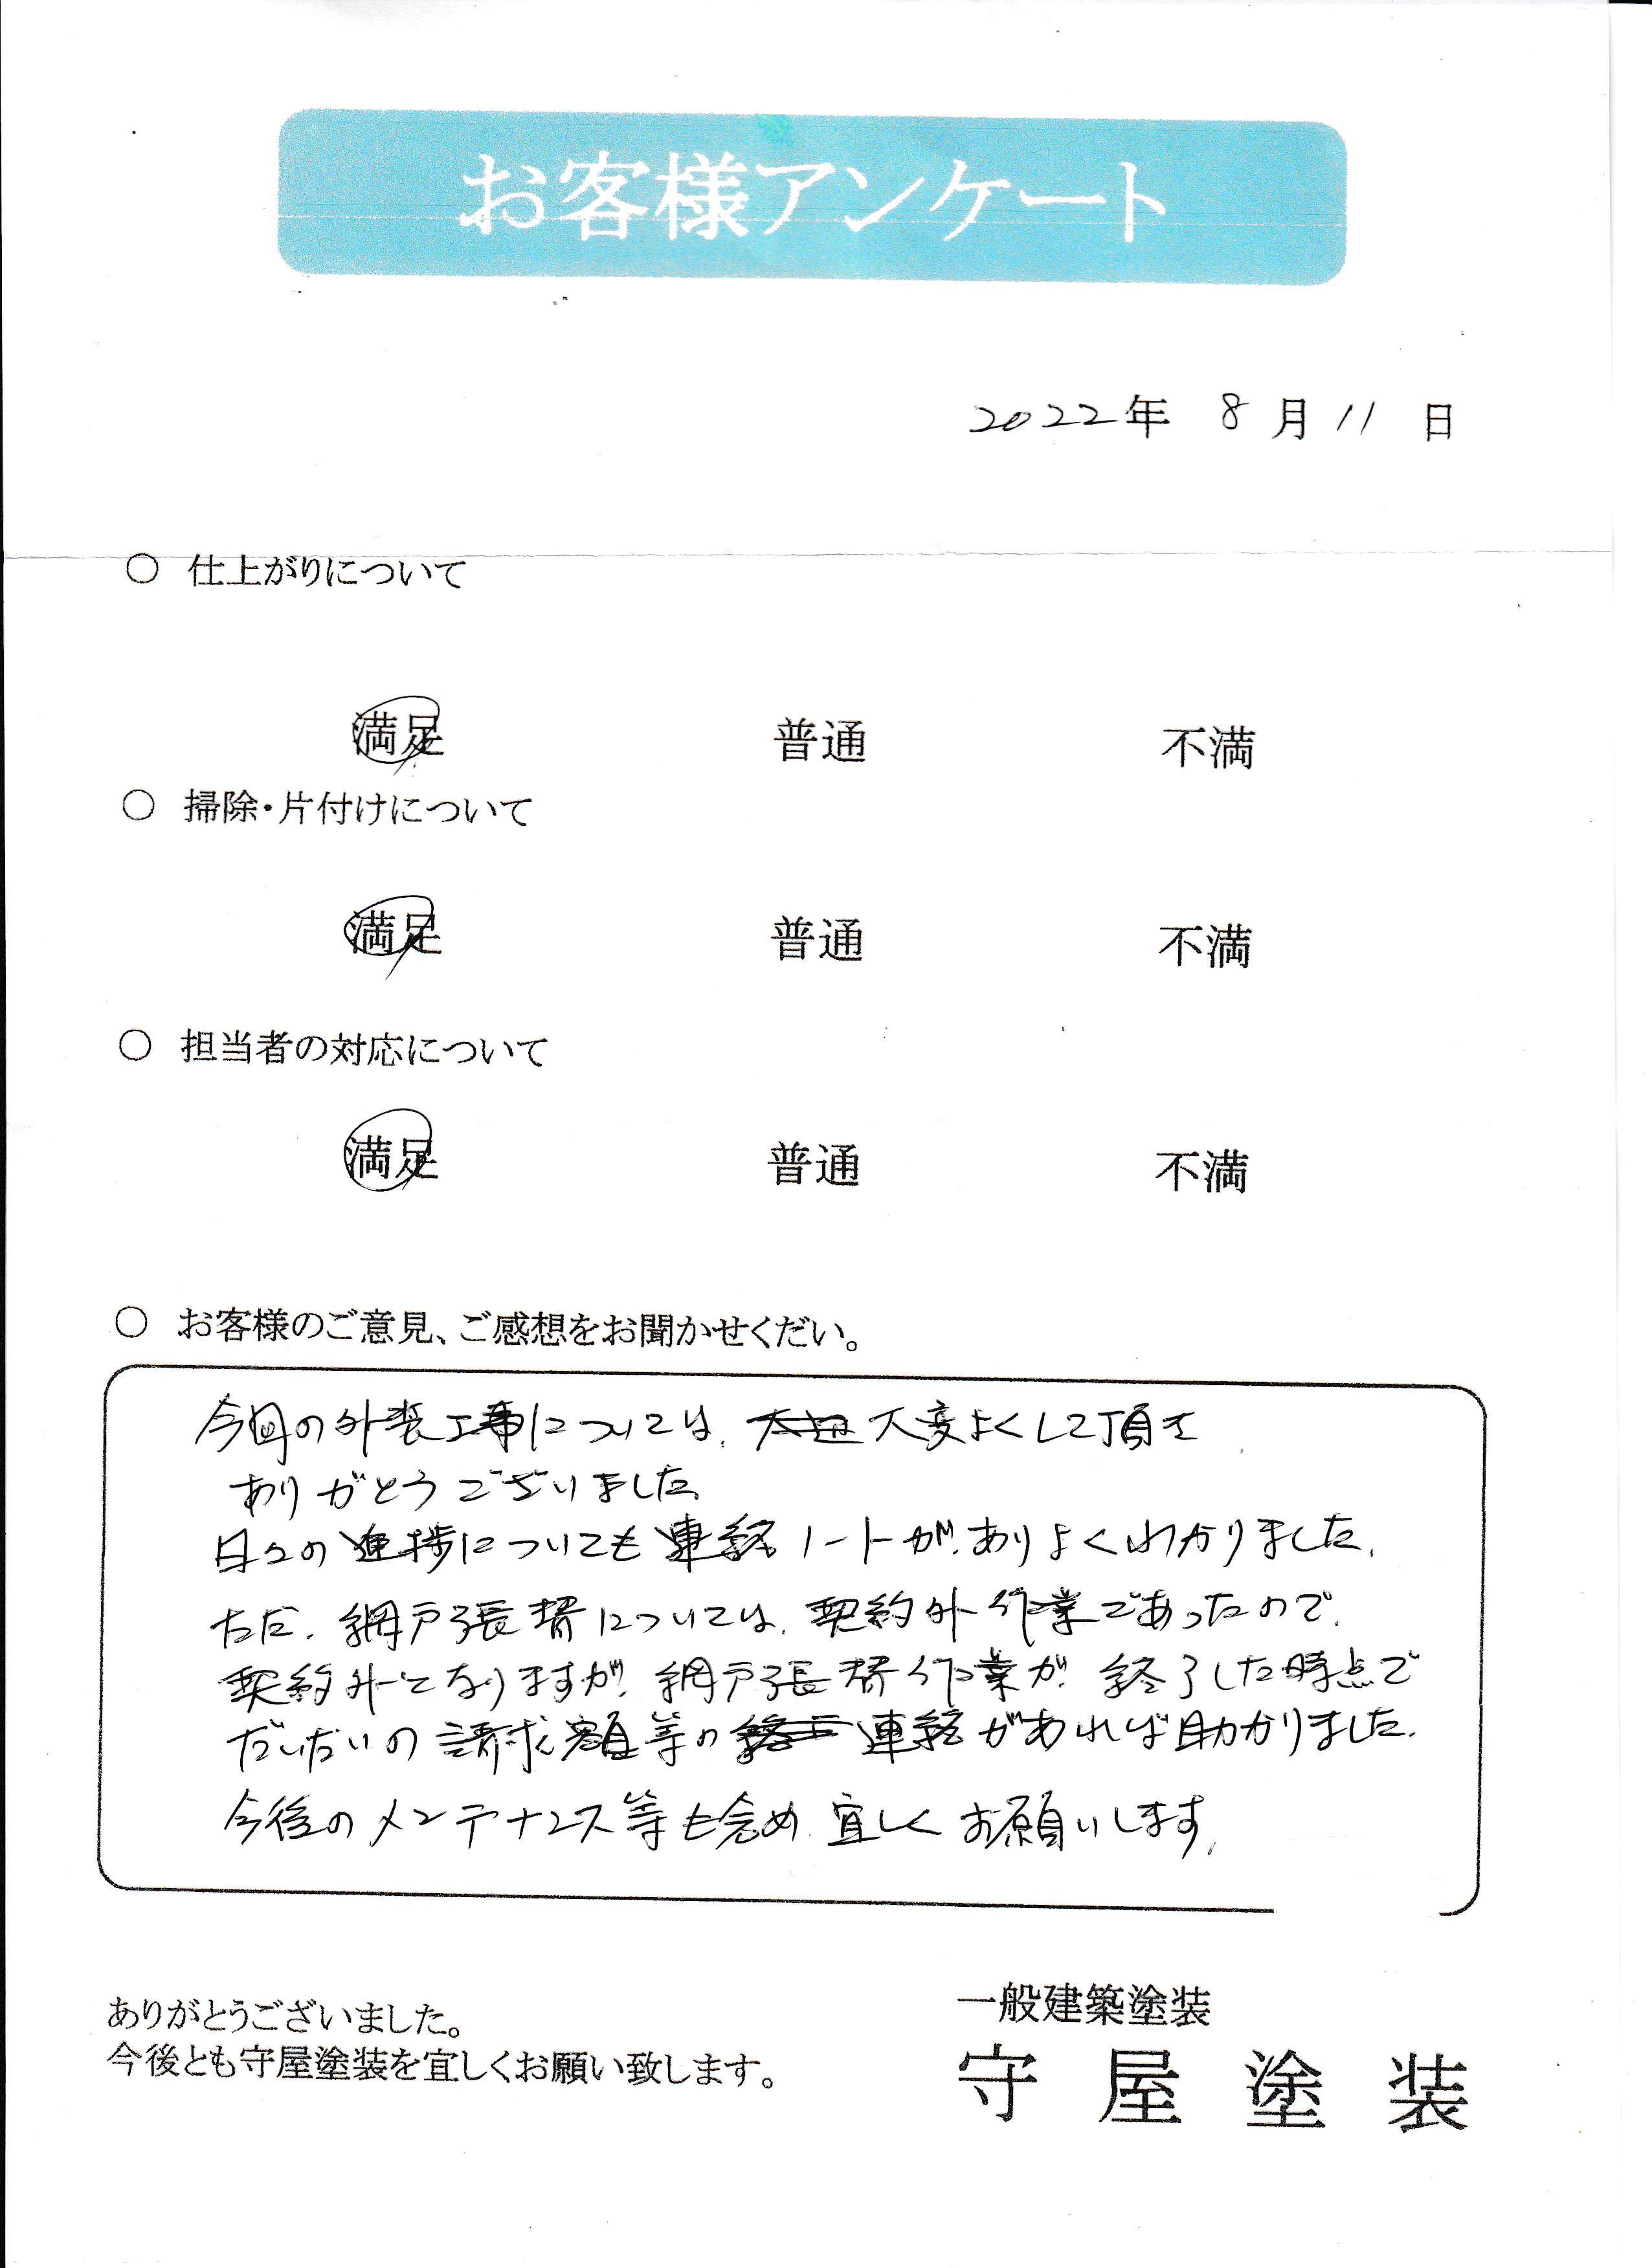 お客様アンケート
2022年 8月11日
○ 仕上がりについて
満足 普通 不満
○ 掃除・片付けについて
満足 普通 不満
○ 担当者の対応について
満足 普通 不満
○ お客様のご意見、ご感想をお聞かせくだい。
今回の外装工事については、大変よくして頂き
ありがとうございました。
日々の進捗についても連絡ノートが、ありよくわかりました。
ただ、網戸張替については、契約外作業であったので、
契約外となりますが、網戸張替作業が、終了した時点で
だいたいの請求額等の連絡があれば助かりました。
今後のメンテナンス等も含め、宜しくお願いします。
ありがとうございました。
今後とも守屋塗装を宜しくお願い致します。
一般建築塗装
守屋塗装